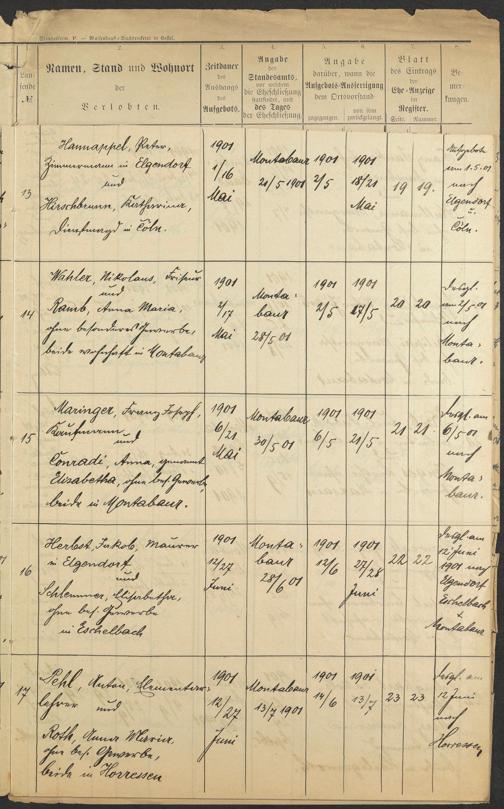 2.
3.
4.
5.
6.
7.
8.
Lau-
fende
№
Namen, Stand und Wohnort
der
Verlobten.
Zeitdauer
des
Aushangs
des
Aufgebots.
Angabe
des
Standesamts,
vor welchem
die Eheschließung
stattfindet, und
des Tages
der Eheschließung
Angabe
darüber, wann die
Aufgebots-Ausfertigung
dem Ortsvorstand
zugegangen.
von dem
zurückgelangt.
Blatt
des Eintrags
der
Ehe-Anzeige
im
Register.
Seite.
Nummer.
Be-
mer-
kungen.
13
Hannappel, Peter,
Zimmermann in Elgendorf
und
Hirschbrunn, Katharina,
Dienstmagd in Cöln.
1901
1/16
Mai
Montabaur
21/5 1901
1901
2/5
1901
18/21
Mai
19
19.
Aufgebote
am 1.5.01
nach
Elgendorf
u.
Cöln.
14
Wahler, Nikolaus, Friseur
und
Ramb, Anna Maria,
ohne besonderes Gewerbe,
beide wohnhaft in Montabaur
1901
2/17
Mai
Monta-
baur
28/5 01
1901
2/5
1901
17/5
20
20
Desgl.
am 2/5 01
nach
Monta-
baur.
15
Maringer, Franz Joseph,
Kaufmann
und
Conradi, Anna, genannt
Elisabetha, ohne bes. Gewerbe,
beide in Montabaur.
1901
6/21
Mai
Montabaur
30/5 01
1901
6/5
1901
21/5
21
21.
Desgl. am
6/5 01
nach
Monta-
baur.
16
Herbst, Jakob, Maurer
in Elgendorf
und
Schlemmer, Elisabetha,
ohne bes. Gewerbe
in Eschelbach
1901
12/27
Juni
Monta-
baur
28/6 01
1901
12/6
1901
27/28
Juni
22
22
Desgl. am
12 Juni
1901 nach
Elgendorf
Eschelbach
u
Montabaur
17
Pehl, Anton, Elementar-
lehrer und
Roth, Anna Maria,
ohne bes. Gewerbe,
beide in Horressen
1901
12/27
Juni
Montabaur
13/7 1901
1901
14/6
1901
13/7
23
23
Desgl. am
12 Juni
nach
Horressen